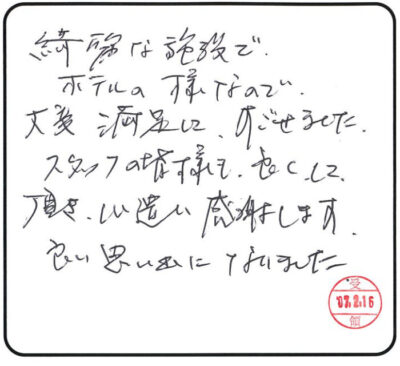 綺麗な施設で.
ホテルの様なので.
大変満足に、すごせました.
スタッフの皆様も、良くして、
頂き、心遣い感謝します.
良い思い出になりました
受
07.2.16
領